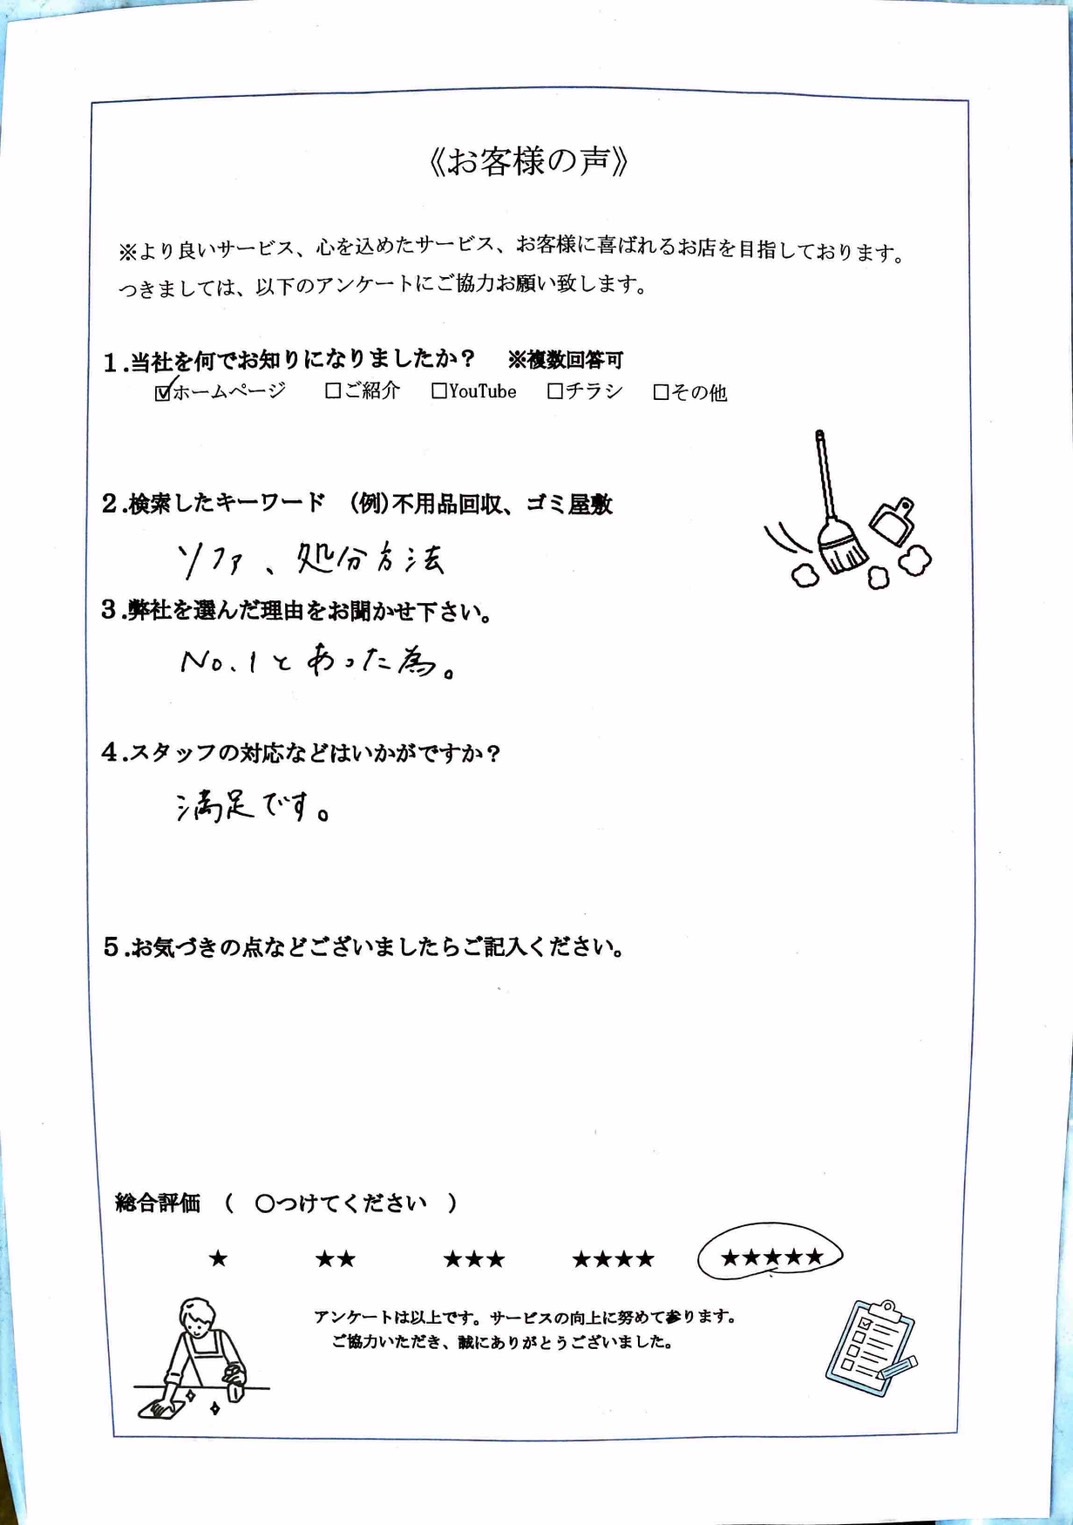 《お客様の声》
※より良いサービス、心を込めたサービス、お客様に喜ばれるお店を目指しております。
つきましては、以下のアンケートにご協力お願い致します。
1.当社を何でお知りになりましたか？　※複数回答可
☑ホームページ　□ご紹介　□YouTube　□チラシ　□その他
2.検索したキーワード　(例)不用品回収、ゴミ屋敷
ソファ、処分方法
3.弊社を選んだ理由をお聞かせ下さい。
No.1とあった為。
4.スタッフの対応などはいかがですか？
満足です。
5.お気づきの点などございましたらご記入ください。
総合評価　(　〇つけてください　)
★　★★　★★★　★★★★　★★★★★
アンケートは以上です。サービスの向上に努めて参ります。
ご協力いただき、誠にありがとうございました。